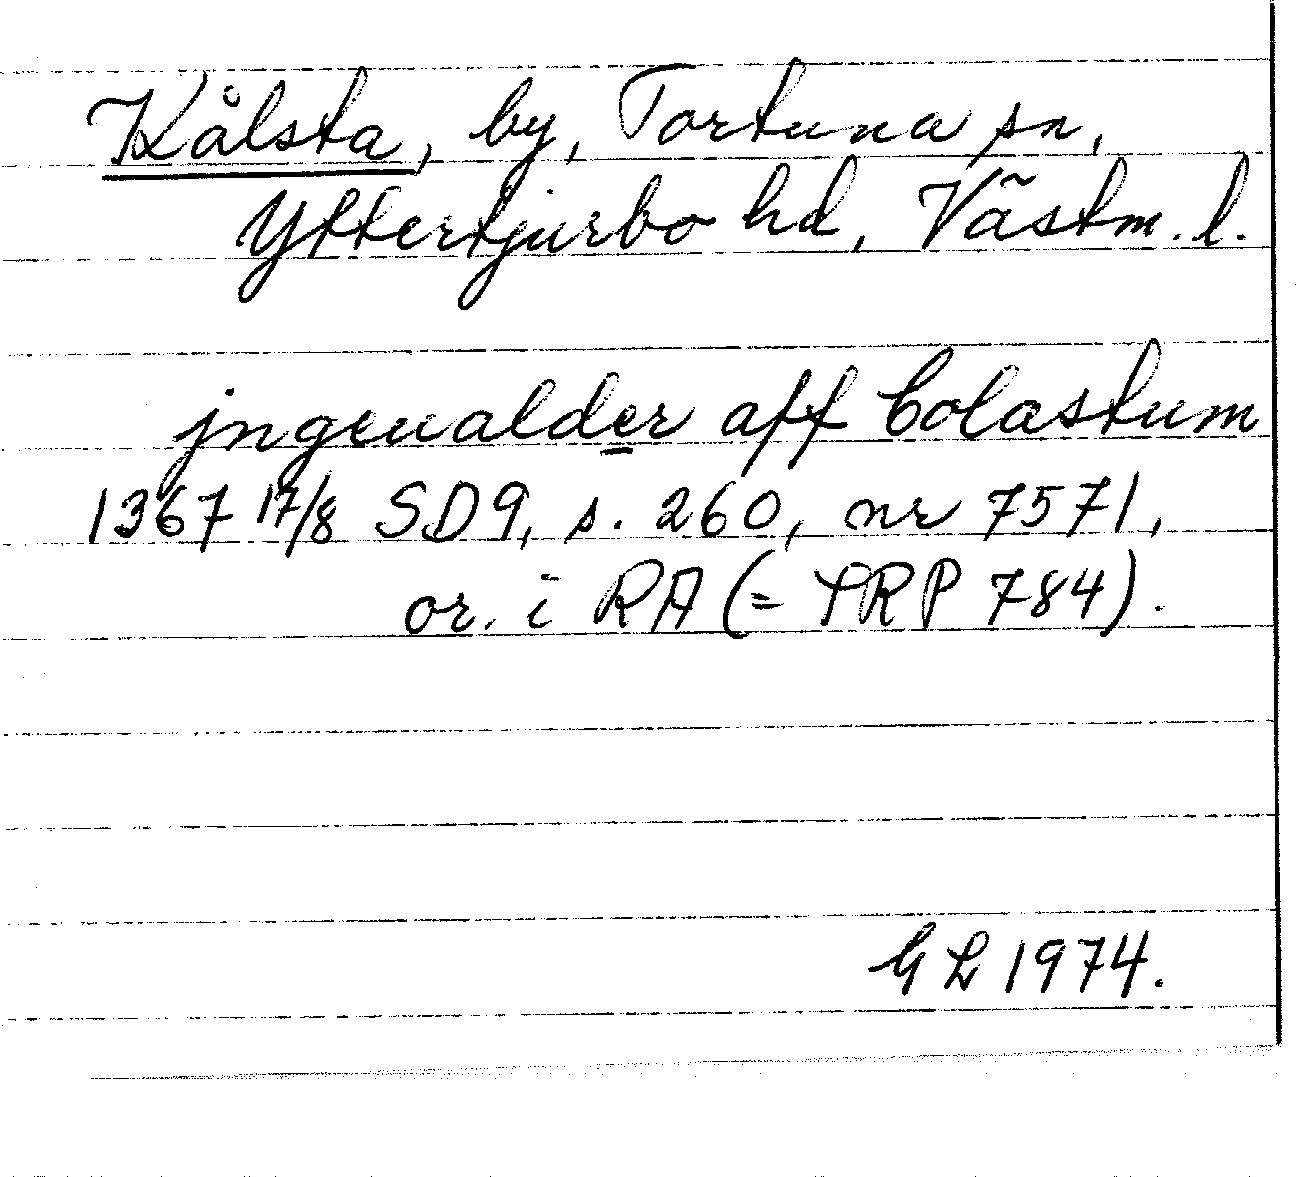 Kålsta, by, Tortuna sn,
Yttertjurbo hd, Västm. l.
jngeualder aff Colastum
1367 17/8 SD9, s. 260, nr 7571,
or. i RA (= TRP 784).
GL 1974.